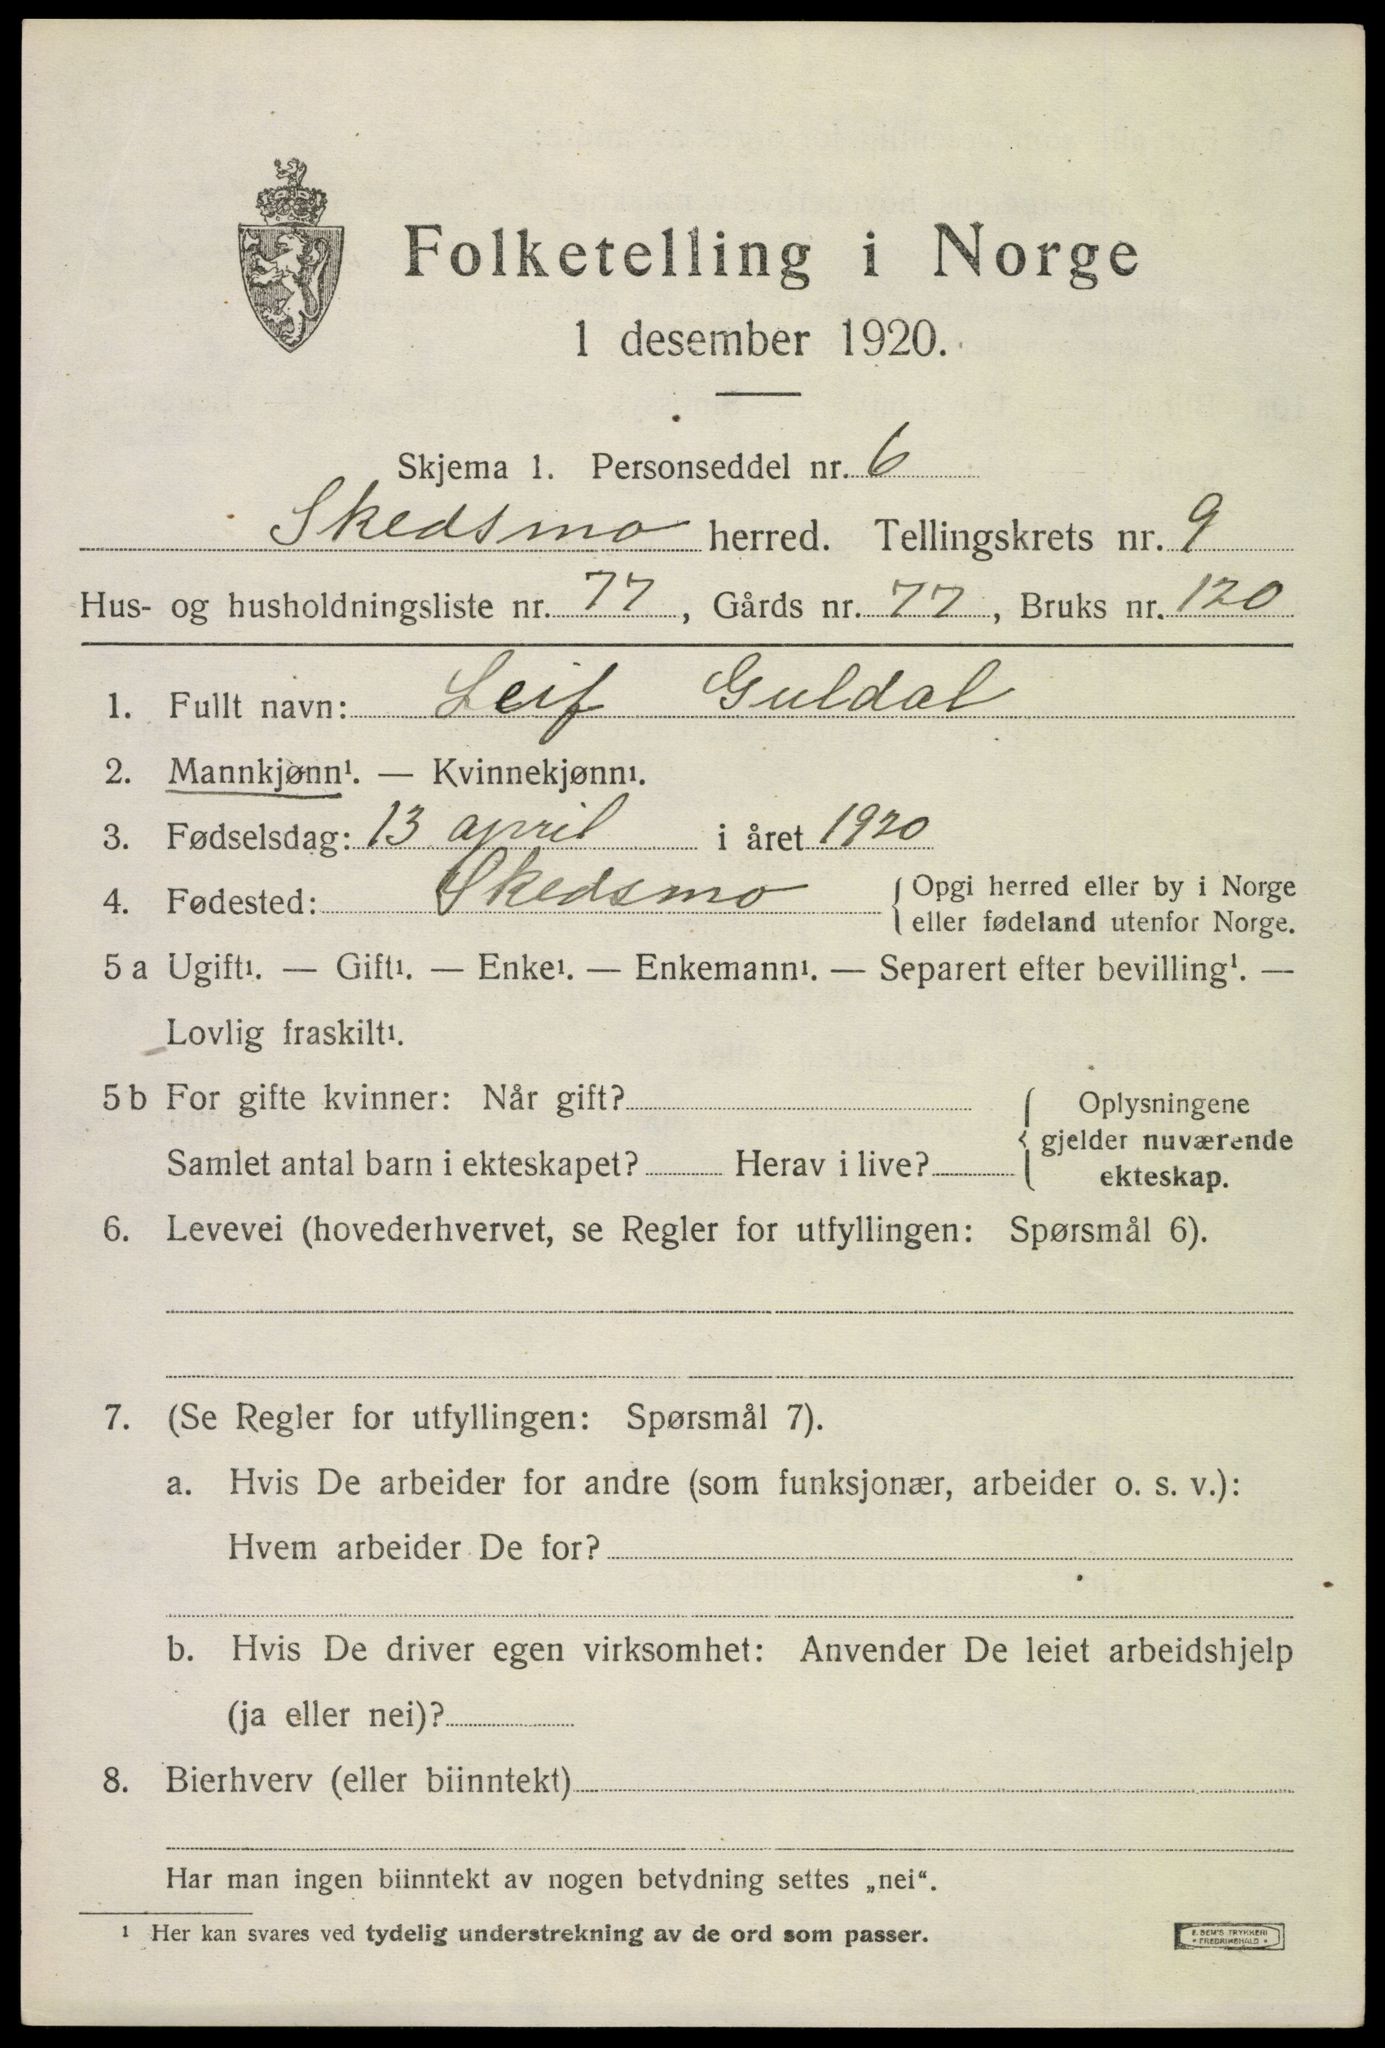 Folketelling i Norge
1 desember 1920.
Skjema 1. Personseddel nr. 6
Skedsmo herred. Tellingskrets nr. 9
Hus- og husholdningsliste nr. 77, Gårds nr. 77, Bruks nr. 120
1. Fullt navn: Leif Guldal
2. Mannkjønn¹. — Kvinnekjønn¹.
3. Fødselsdag: 13 april i året 1920
4. Fødested: Skedsmo { Opgi herred eller by i Norge
eller fødeland utenfor Norge.
5 a Ugift¹. — Gift¹. — Enke¹. — Enkemann¹. — Separert efter bevilling¹. —
Lovlig fraskilt¹.
5 b For gifte kvinner: Når gift? { Oplysningene
gjelder nuværende
Samlet antal barn i ekteskapet? Herav i live? ekteskap.
6. Levevei (hovederhvervet, se Regler for utfyllingen: Spørsmål 6).
7. (Se Regler for utfyllingen: Spørsmål 7).
a. Hvis De arbeider for andre (som funksjonær, arbeider o. s. v.):
Hvem arbeider De for?
b. Hvis De driver egen virksomhet: Anvender De leiet arbeidshjelp
(ja eller nei)?
8. Bierhverv (eller biinntekt)
Har man ingen biinntekt av nogen betydning settes „nei“.
¹ Her kan svares ved tydelig understrekning av de ord som passer.
E. SEM'S TRYKKERI
* FREDRIKSHALD *